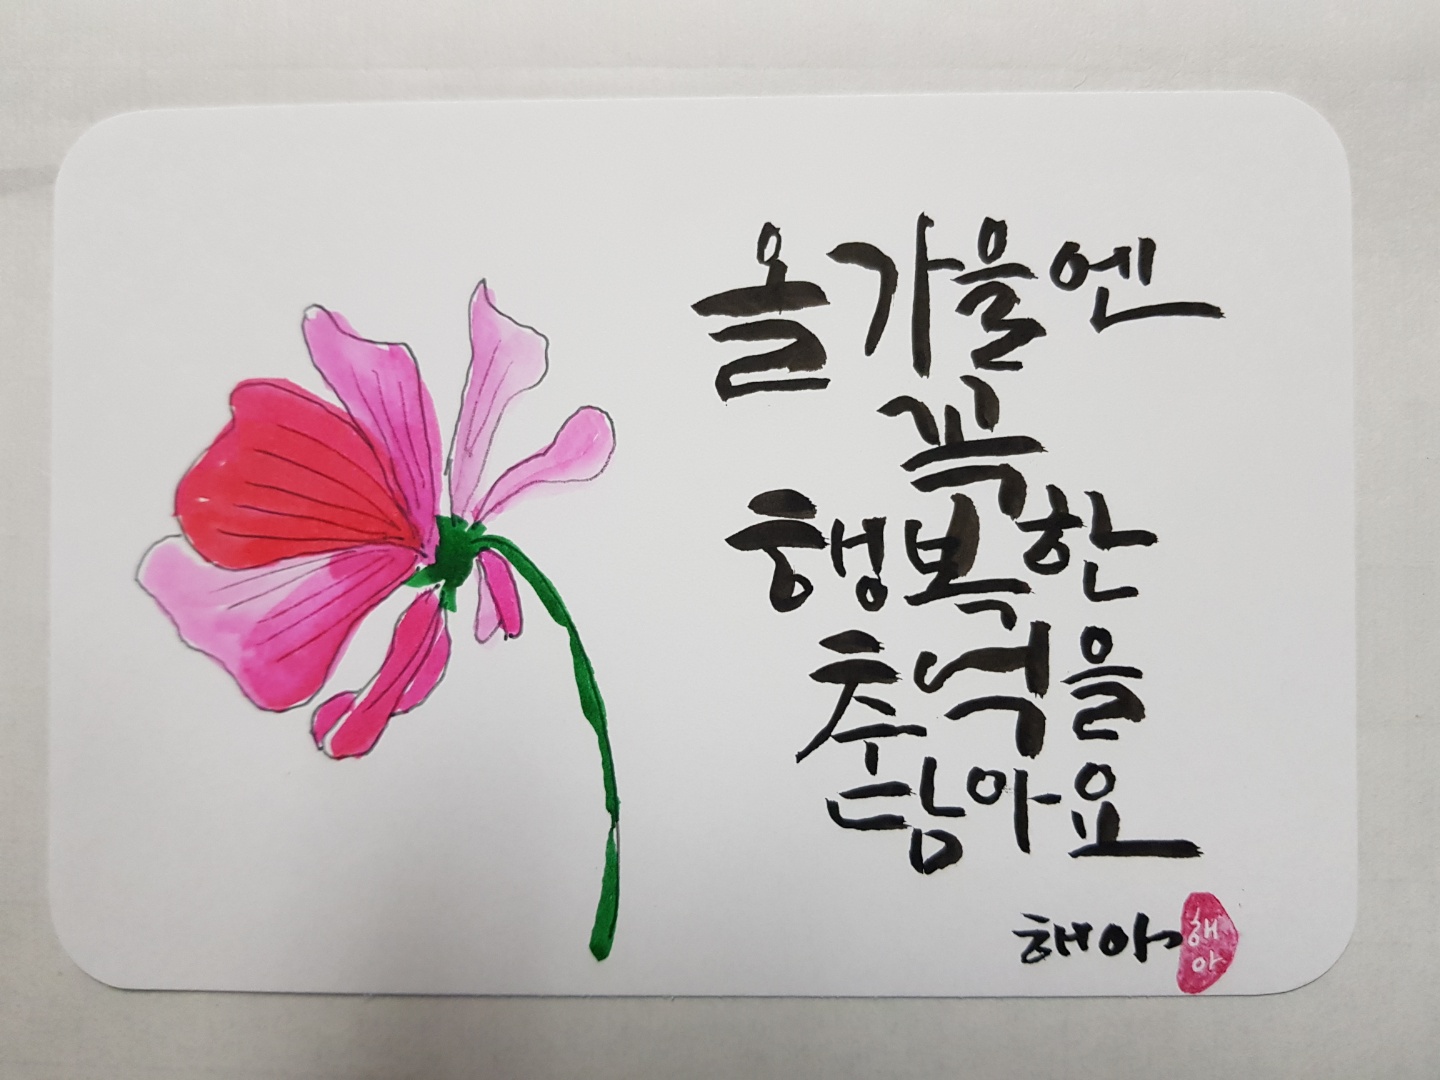 올가을엔
꼭
행복한
추억을
담아요
해아
해
아